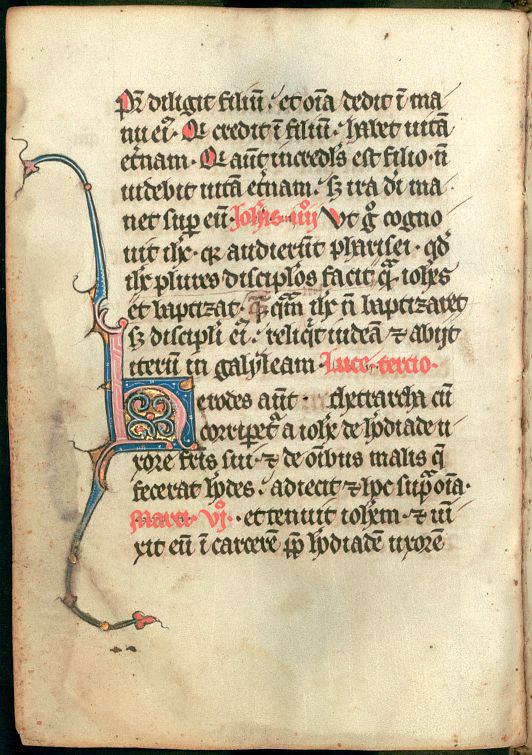 Pr̄ diligit filiū. et oīa dedit ī ma
nu ei᷒. Qi credit ī filiū. habet uitā
et̄nam. Qi aūt incredl̄s est filio. n̄
uidebit uitā et̄nam. sꝫ ira dī ma
net sup eū. Joh̄is. iiij Vt g̊ cogno
uit ih̄c. qꝛ audierūt pharisei. qd̄
ih̄c plures discip̄los facit q̄ᵃ ioh̄es
et baptizat. ꝗ̄ꝗ̄m ih̄c n̄ baptizaret
sꝫ discip̄li ei᷒. reliq̄t iudeā ⁊ abijt
iterū in galyleam. Luce. tercio.
Herodes aūt. thetrarcha cū
corripet̄ᷣ a ioh̄e de h̄odiade u
xore fr̄is sui. ⁊ de oībus malis q̄
fecerat h̄odes. adiecit ⁊ hoc supᵃ oīa.
Marci. vj. et tenuit ioh̄em. ⁊ uī
xit eū ī carcerē ꝓp̄ h̄odiadē uxorē